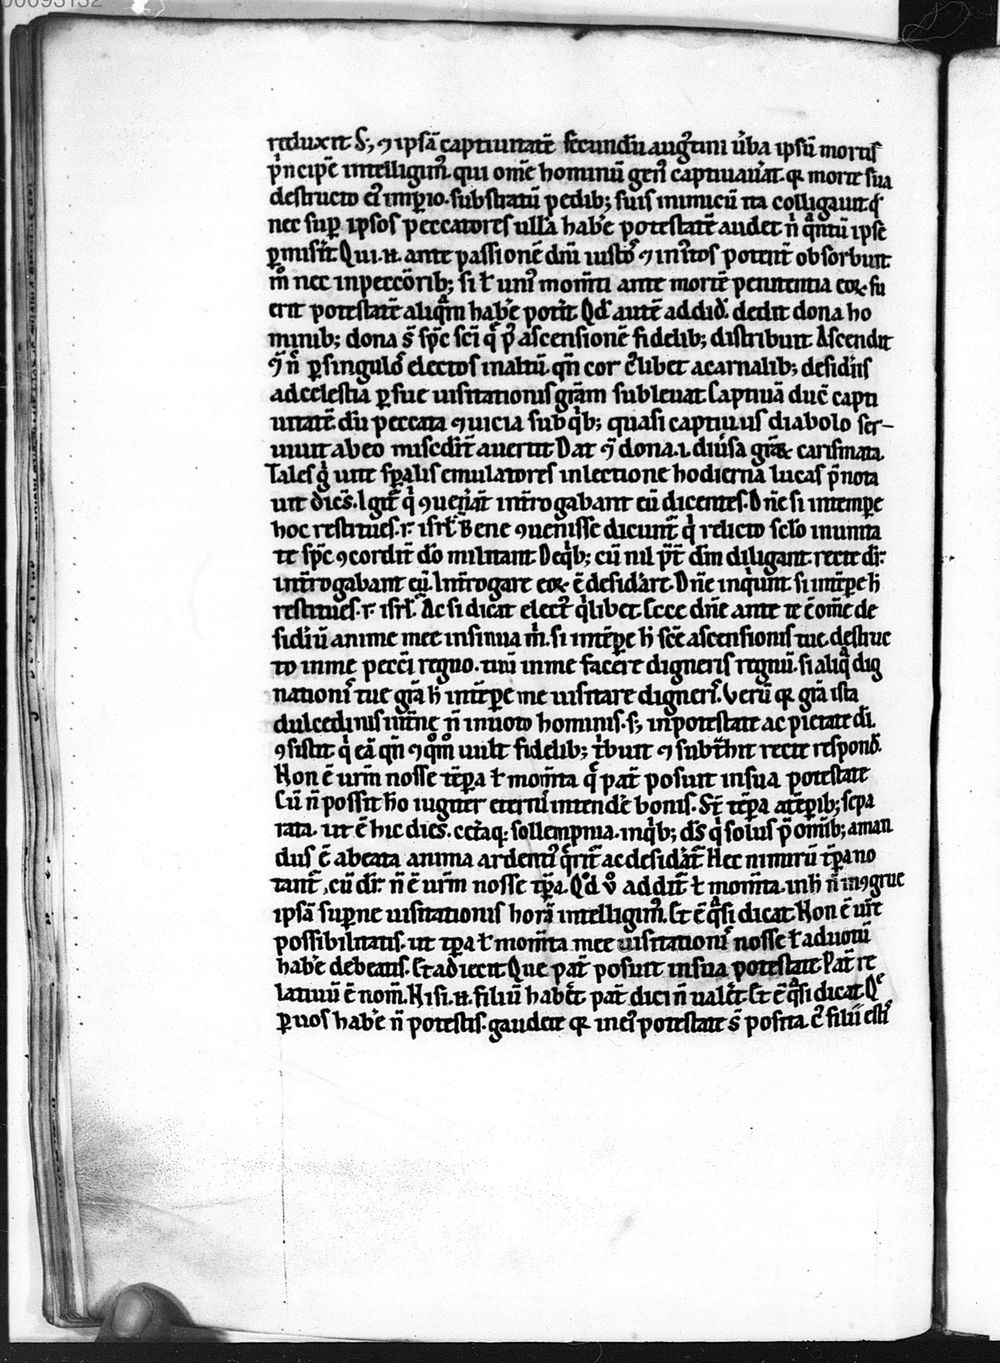 00093132
reduxit S; ꝯ ipsā captiuitatē secundū augꝰtini ūba ipsū mortis
pͥncipē intelligimꝰ. qui om̄e hominū genꝰ captiuauāt. qꝛ morte sua
destructo eiꝰ imꝑio. substratū pedib; suis inimicū ita colligauit. qđ
nec suꝑ ipsos peccatores ullā hab̄e potestatē audet n̄ qͣntū ipse
ꝑmiserit Qui .n. ante passionē dn̄i iustoꝰ ⁊ iniꝰtos potent̄ obsorbuit
m̊ nec in peccōrib; si ł uniꝰ momēti ante mortē penitentia eoꝝ fu
erit potestatē aliqͣm hab̄e potit̄ Qđ autē addid̄. dedit dona ho
minib; dona s̄ sp̄c sc̄i q̄ p̄ ascensionē fidelib; distribuit Ascendit
⁊ n̄ ꝑ singulos electos in altū. qn̄ cor cꝰlibet a carnalib; desidiis
ad celestia ꝑ sue uisitationis grām subleuat Captiuā duc̄ capti
uitatē dū peccata ⁊ uicia sub qͥb; quasi captiuus diabolo ser-
uiuit ab eo misedit̄ auertit Dat ⁊ dona .i. diūsa grē carismata.
Tales g̊ uiit sp̄alis emulatores in lectione hodierna lucas p̄nota
uit dicēs. Igit̄ qͥ ꝯuen̄ant int̄rogabant eū dicentes. Dn̄e si in tempe
hoc restitues. r. isrł. Bene ꝯuenisse dicunt̄ qͥ relicto sclo in unita
te sp̄c ꝯcordit̄ do militant De qͥb; cū nil p̄t dm̄ diligant. recte dr̄.
int̄rogabant eū. Int̄rogare eoꝝ ē desidāre. Dn̄e inqͥunt si in tēpe h̄
restitues. r. isrł. Ac si dicat electꝰ qͥlibet. Ecce dn̄e ante te ē om̄e de
sidiū anime mee insinua m̄. si in tēpe h̄ sc̄e ascensionis tue. destruc
to in me pecci regno. tuū in me facere digneris regnū. si aliqͣ dig
nationiꝰ tue gr̄a h̄ in tēpe me uisitare digneriꝰ. Verū qꝛ gr̄a ista
dulcedinis int̄ne n̄ in uoto hominis. s; in potestate ac pietate di.
ꝯsistit qͥ eā qn̄ ⁊ qͦm̊ uult fidelib; tͥbuit ⁊ subt̄hit recte respond̄.
Non ē ur̄m nosse tēpa ł mom̄ta q̄ pat̄ posuit in sua potestate
Cū n̄ possit ho iugiter eterniꝰ intendē bonis. St̄ tēpa a tēpib; sepa
rata. ut ē hic dies. cetaq; sollempnia. in qͥb; ds̄ qͥ solus p̄ om̄ib; aman
dus ē a beata anima ardentiꝰ qͥrit̄ ac desidāt̄ Hec nimirū tēpa no
tant̄, cū dr̄ n̄ ē ur̄m nosse tp̄a. Qđ v̊ addit̄ ł mom̄ta. in h̄ n̄ inꝯgrue
ipsā suꝑne uisitationis horā intelligimꝰ. Et ē qͣsi dicat Non ē ur̄e
possibilitatis. ut tp̄a ł mom̄ta mee uisitationiꝰ nosse ł ad uotū
hab̄e debeatis. Et adiecit Que pat̄ posuit in sua potestate Pat̄ re
latiuū ē nom̄. Nisi .n. filiū habet̄ pat̄ dici n̄ ualet̄ Et ē qͣsi dicat. Qͤ
ꝑ uos hab̄e n̄ potestis. gaudete qꝛ in eiꝰ potestate s̄ posita. cꝰ filii estiꝰ